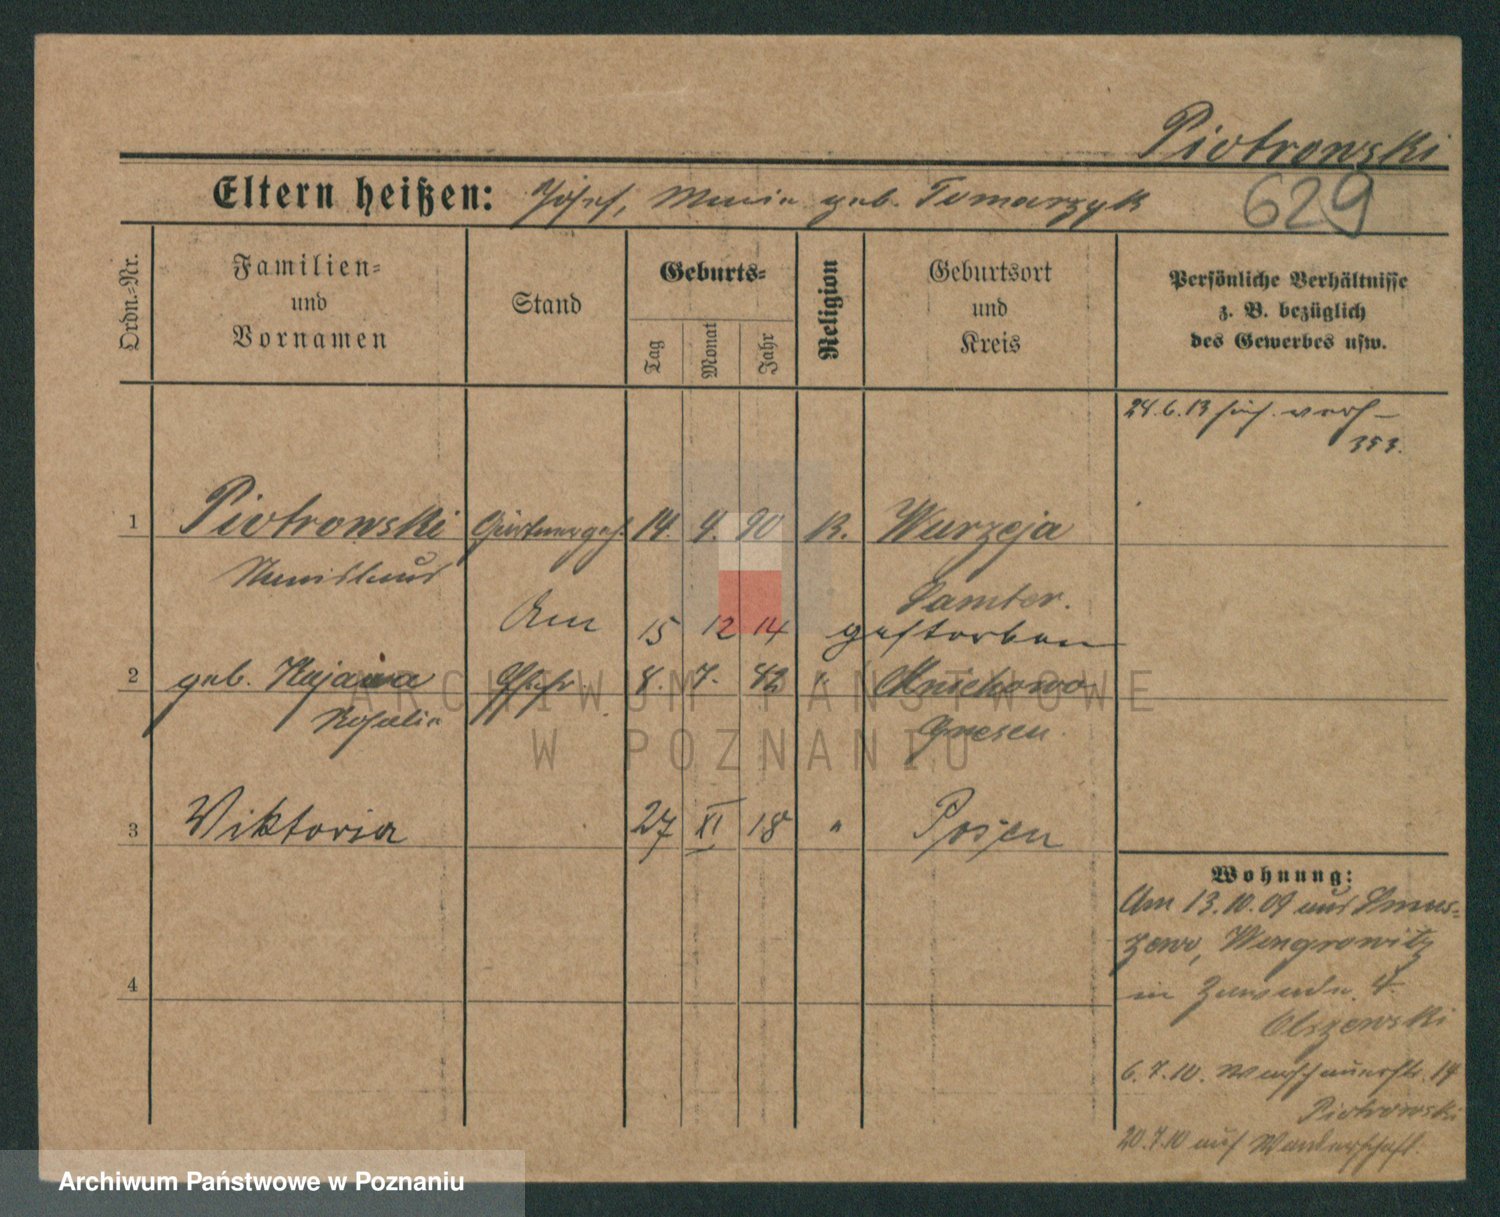 Piotrowski
629
Eltern heißen: Josef, Marie geb. Tomarzyk
Ordn.-Nr.
Familien-
und
Vornamen
Stand
Geburts-
Tag
Monat
Jahr
Religion
Geburtsort
und
Kreis
Persönliche Verhältnisse
z. B. bezüglich
des Gewerbes usw.
24.6.13
353.
1 Piotrowski Gärtnergeh. 14. 4. 90 K. Wurzeja
Stanislaus
Samter.
Am 15 12 14 gestorben
2 geb. Ehefr. 8. 7. 82 "
Rosalie
Gnesen.
3 Viktoria 27 XI 18 " Posen
4
Wohnung:
Am 13.10.09 aus
Wongrowitz
in Zawade 4
Olszewski
6.7.10. Warschauerstr. 14
Piotrowski
20.7.10 auf Wanderschaft.
ARCHIWUM PAŃSTWOWE
W POZNANIU
Archiwum Państwowe w Poznaniu